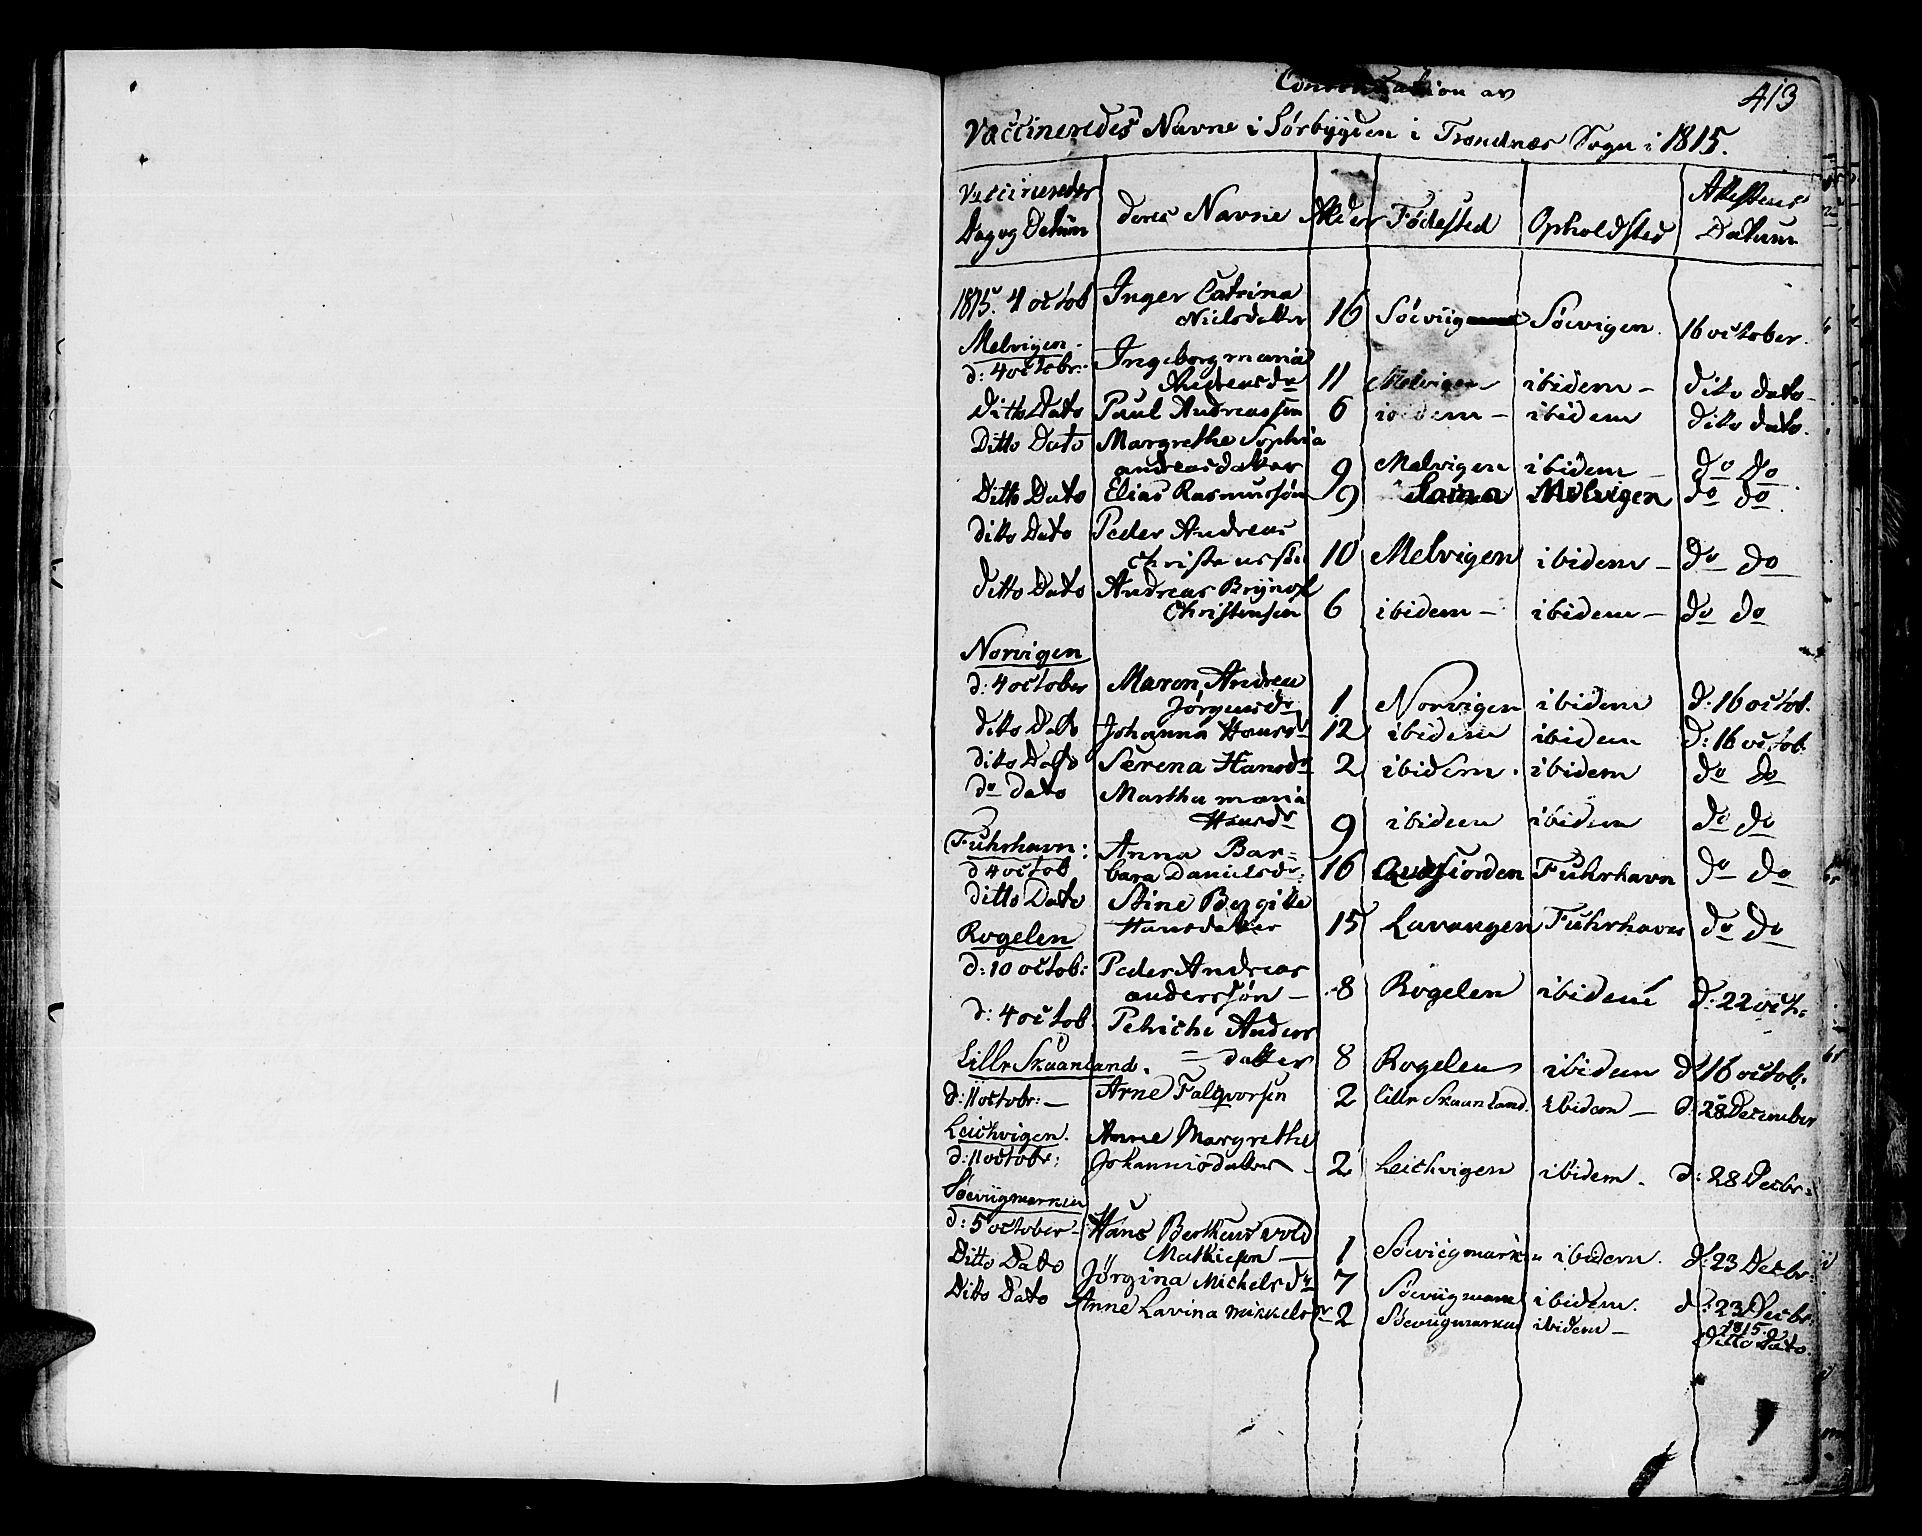 413
av
Vaccineredes Navne i Sørbygden i Trondnæs Sogn i 1815.
Vaccineredes Dag og Datum | deres Navne | Alder | Fødested | Opholdsted | Attestens Datum
1815. 4 octob | Inger Catrina
Nielsdatter | 16 | Søevig | Søevigen. | 16 october.
Melvigen
d: 4 octobr: | Ingeborg maria
Andreasdr | 11 | Melvigen | ibidem | dito dato
Ditto Dato | Paul Andreassen | 6 | ibidem | ibidem | dito dato.
Ditto Dato | Margrethe Sophia
andreasdatter | 9 | Melvigen | ibidem | do do
Ditto Dato | Elias Rasmussøn | 9 | Melvigen | do do
dito Dato | Peder Andreas
Christenssøn | 10 | Melvigen | ibidem | do do
Ditto Dato | Andreas Brynol
Christensen | 6 | ibidem | ibidem | do do
Norvigen
d: 4 october | Maren Andrea
Jørgensdr | 1 | Norvigen | ibidem | d: 16 octob.
dito Dato | Johanna Hansdr | 12 | ibidem | ibidem | d: 16 octob:
dito Dato | Serena Hansdr | 2 | ibidem. | ibidem | do do
do dato | Martha maria
Hansdr | 9 | ibidem | ibidem | do do
Fuhrhavn:
d 4 octob | Anna Bar=
bara Danielsdr: | 16 | Qvefiorden | Fuhrhavn | do do
ditto Dato | Stine Bergitte
Hansdatter | 15 | Lavangen | Fuhrhavn | do do
Rogelen
d: 10 octob: | Peder Andreas
anderssøn | 8 | Rogelen | ibidem | d: 22 octb:
d: 4 octob. | Petriche Anders
= datter | 8 | Rogelen | ibidem | d 16 octob:
Lille Skaanland.
d: 11 octobr: | Arne Falqvorsen | 2 | Lille Skaanland. | ibidem | d: 28 December
Leichvigen.
d: 11 octobr: | Anne Margrethe
Johannisdatter | 2 | Leichvigen | ibidem. | d: 28 Decbr:
Søeviigmarken
d: 5 october | Hans Bertheus vold
Mathieson | 1 | Søeviigmarken | ibidem. | d: 23 Decbr:
Ditto Dato | Jørgina Michelsdr | 7 | Søeviigmark | ibidem. | d: 23 Decbr
1815.
Dito Dato | Anne Lavina mikkelsdr | 2 | Søeviigmarken | ibidem | Ditto Dato.